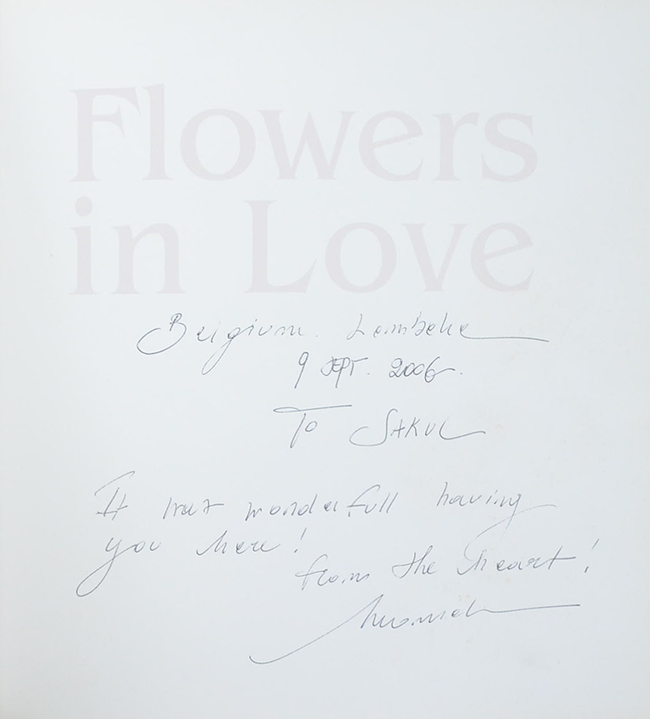 Flowers
in Love
Belgium. Lembeke
9 SEPT. 2006.
To SAKUL
It was wonderfull having
you here!
from the heart!